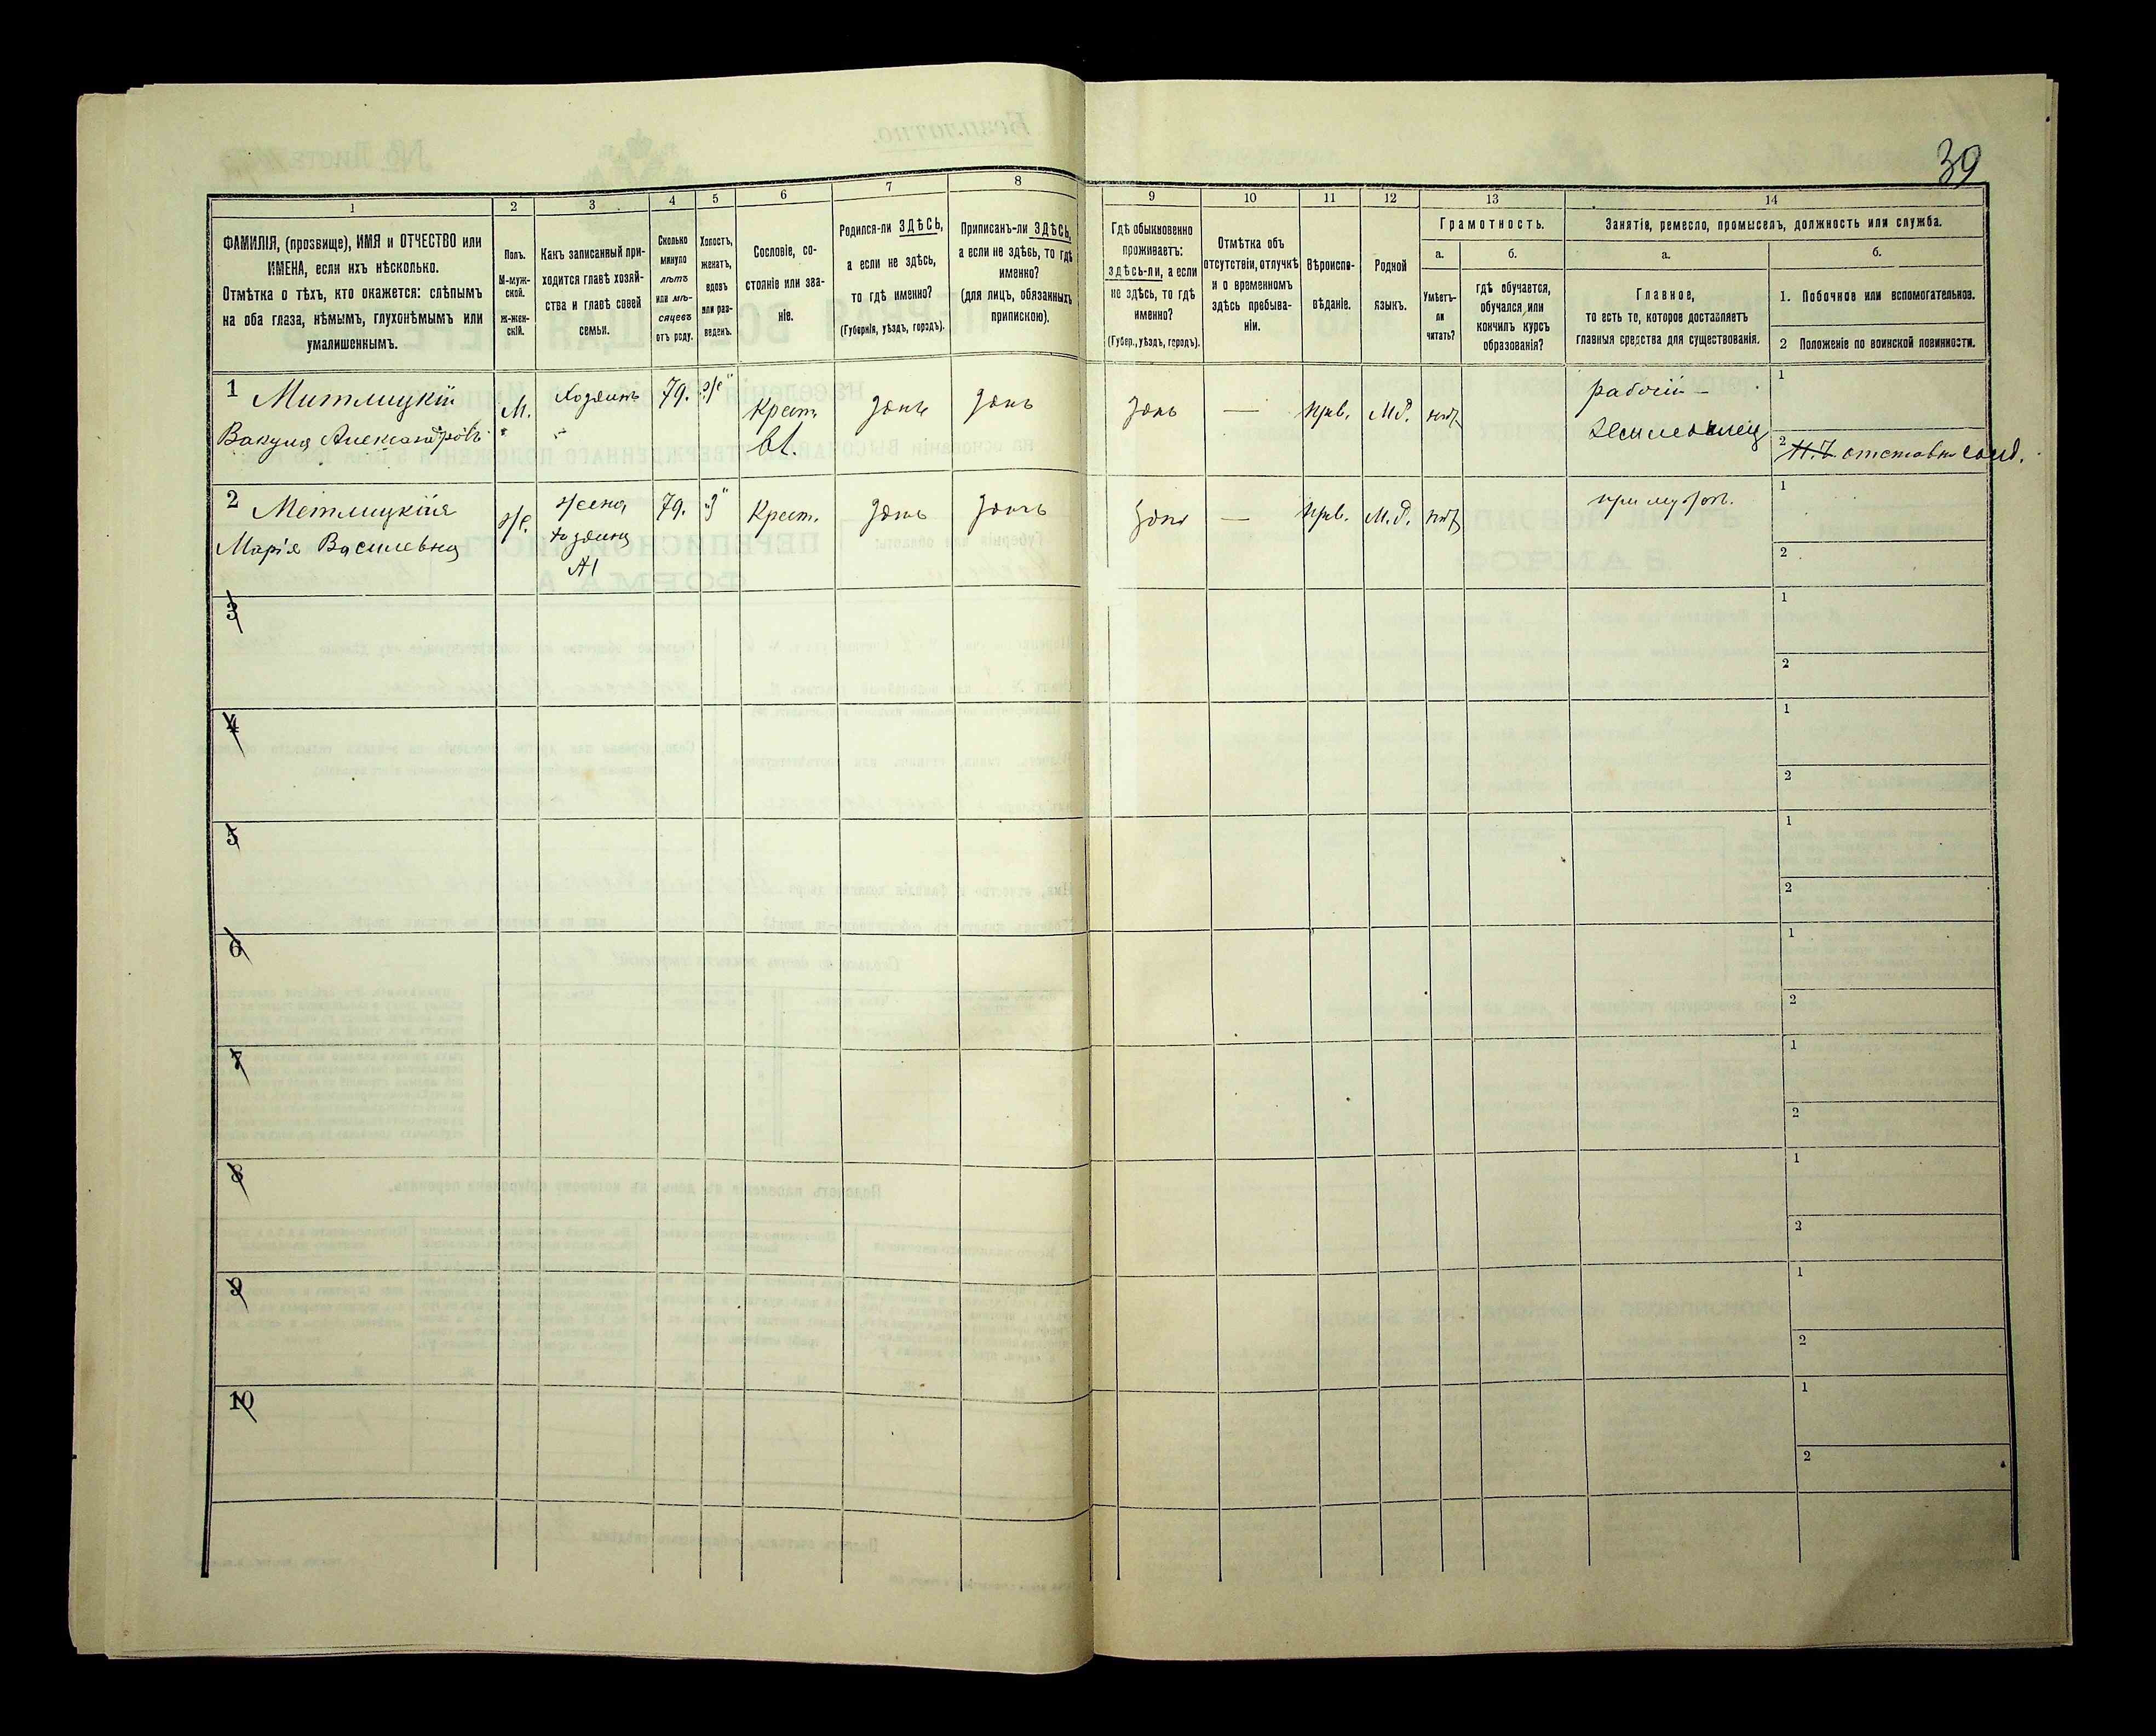 39
1
2
3
4
5
6
7
8
9
10
11
12
13
14
ФАМИЛІЯ, (прозвище), ИМЯ и ОТЧЕСТВО или
ИМЕНА, если ихъ нѣсколько.
Отмѣтка о тѣхъ, кто окажется: слѣпымъ
на оба глаза, нѣмымъ, глухонѣмымъ или
умалишеннымъ.
Полъ.
М-муж-
ской.
Ж-жен-
скій.
Какъ записанный при-
ходится главѣ хозяй-
ства и главѣ своей
семьи.
Сколько
минуло
лѣтъ
или мѣ-
сяцевъ
отъ роду.
Холостъ,
женатъ,
вдовъ
или раз-
веденъ.
Сословіе, со-
стояніе или зва-
ніе.
Родился-ли ЗДѢСЬ,
а если не здѣсь,
то гдѣ именно?
(Губернія, уѣздъ, городъ).
Приписанъ-ли ЗДѢСЬ,
а если не здѣсь, то гдѣ
именно?
(для лицъ, обязанныхъ
припискою).
Гдѣ обыкновенно
проживаетъ:
здѣсь-ли, а если
не здѣсь, то гдѣ
именно?
(Губер., уѣздъ, городъ).
Отмѣтка объ
отсутствіи, отлучкѣ
и о временномъ
здѣсь пребыва-
ніи.
Вѣроиспо-
вѣданіе.
Родной
языкъ.
Грамотность.
а.
Умѣетъ-
ли
читать?
б.
гдѣ обучается,
обучался или
кончилъ курсъ
образованія?
Занятіе, ремесло, промыселъ, должность или служба.
а.
Главное,
то есть то, которое доставляетъ
главныя средства для существованія.
б.
1. Побочное или вспомогательное.
2 Положеніе по воинской повинности.
1 Митлицкій
Вакула Александровъ
М.
Хозяинъ
79.
ж
Крест.
вл.
здѣсь
здѣсь
здѣсь
—
прв.
М.Р.
нѣт
рабочій -
Земледелец
1
2 отставн солд.
2 Метлицкія
Марія Василевна
ж.
жена
хозяина
№1
79.
з
Крест.
здѣсь
здѣсь
здѣсь
—
прв.
М.Р.
нѣт
при мужѣ.
1
2
3
1
2
4
1
2
5
1
2
6
1
2
7
1
2
8
1
2
9
1
2
10
1
2